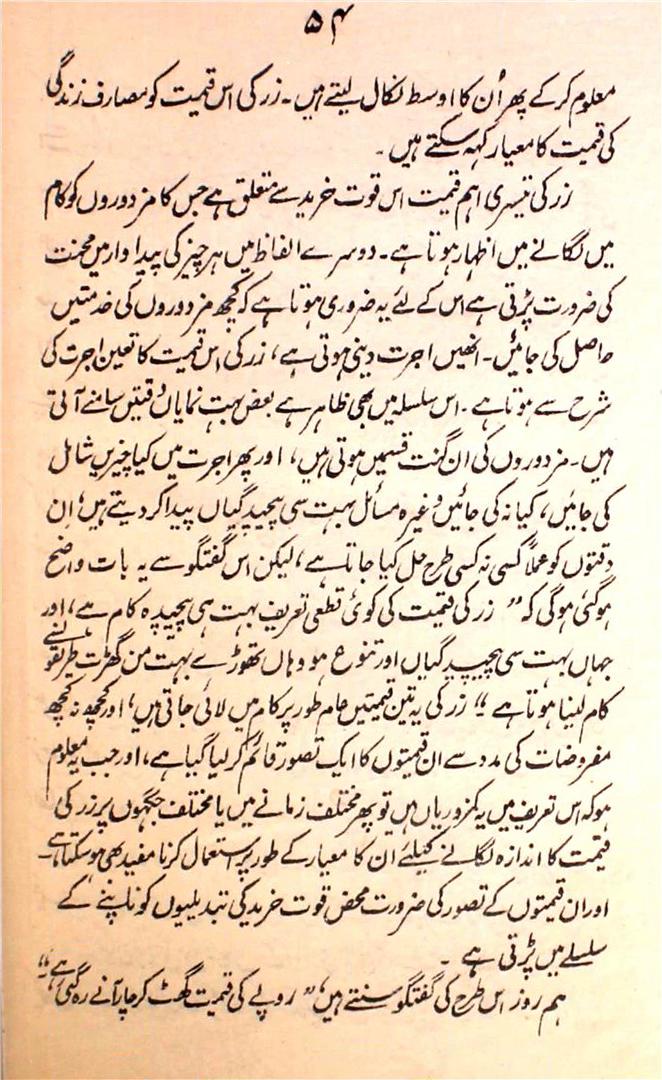 ۵۴
معلوم کرکے پھر اُن کا اوسط نکال لیتے ہیں۔ زر کی اس قیمت کو مصارف زندگی
کی قیمت کا معیار کہہ سکتے ہیں۔
زر کی تیسری اہم قیمت اس قوت خرید سے متعلق ہے جس کا مزدوروں کو کام
میں لگانے میں اظہار ہوتا ہے۔ دوسرے الفاظ میں ہر چیز کی پیداوار میں محنت
کی ضرورت پڑتی ہے اس کے لئے یہ ضروری ہوتا ہے کہ کچھ مزدوروں کی خدمتیں
حاصل کی جائیں۔ انھیں اجرت دینی ہوتی ہے، زر کی اس قیمت کا تعین اجرت کی
شرح سے ہوتا ہے۔ اس سلسلہ میں بھی ظاہر ہے بعض بہت نمایاں دقتیں سامنے آتی
ہیں۔ مزدوروں کی ان گنت قسمیں ہوتی ہیں، اور پھر اجرت میں کیا چیزیں شامل
کی جائیں، کیا نہ کی جائیں وغیرہ مسائل بہت سی پیچیدگیاں پیدا کر دیتے ہیں، اِن
دقتوں کو عملاً کسی نہ کسی طرح حل کیا جاتا ہے، لیکن اس گفتگو سے یہ بات واضح
ہوگئی ہوگی کہ ” زر کی قیمت کی کوئی قطعی تعریف بہت ہی پیچیدہ کام ہے، اور
جہاں بہت سی پیچیدگیاں اور تنوع ہو وہاں تھوڑے بہت من گھڑت طریقوں سے
کام لینا ہوتا ہے “ زر کی یہ تین قیمتیں عام طور پر کام میں لائی جاتی ہیں، اور کچھ نہ کچھ
مفروضات کی مدد سے ان قیمتوں کا ایک تصور قائم کر لیا گیا ہے، اور جب یہ معلوم
ہو کہ اس تعریف میں یہ کمزوریاں ہیں تو پھر مختلف زمانے میں یا مختلف جگہوں پر زر کی
قیمت کا اندازہ لگانے کیلئے ان کا معیار کے طور پر استعمال کرنا مفید بھی ہو سکتا ہے۔
اور ان قیمتوں کے تصور کی ضرورت محض قوت خرید کی تبدیلیوں کو ناپنے کے
سلسلے میں پڑتی ہے۔
ہم روز اس طرح کی گفتگو سنتے ہیں، ” روپے کی قیمت گھٹ کر چار آنے رہ گئی ہے “